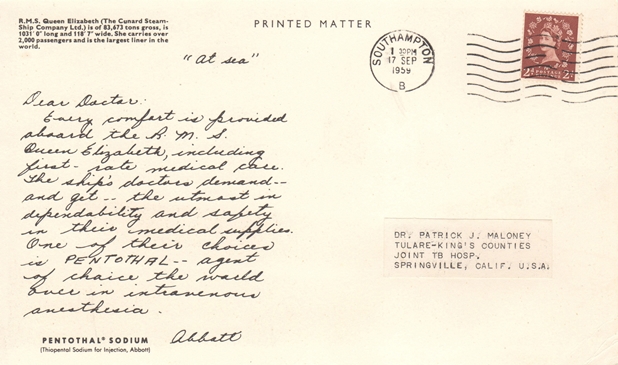 R.M.S. Queen Elizabeth (The Cunard Steam-
Ship Company Ltd.) is of 83,673 tons gross, is
1031' 0" long and 118' 7" wide. She carries over
2,000 passengers and is the largest liner in the
world.
PRINTED MATTER
"At sea"
SOUTHAMPTON
1 30PM
17 SEP
1959
B
Dear Doctor:
Every comfort is provided
aboard the R. M. S.
Queen Elizabeth, including
first-rate medical care.
The ship's doctors demand--
and get -- the utmost in
dependability and safety
in their medical supplies.
One of their choices
is PENTOTHAL -- agent
of choice the world
over in intravenous
anesthesia.
Abbott
DR. PATRICK J. MALONEY
TULARE-KING'S COUNTIES
JOINT TB HOSP.
SPRINGVILLE, CALIF. U.S.A.
PENTOTHAL® SODIUM
(Thiopental Sodium for Injection, Abbott)